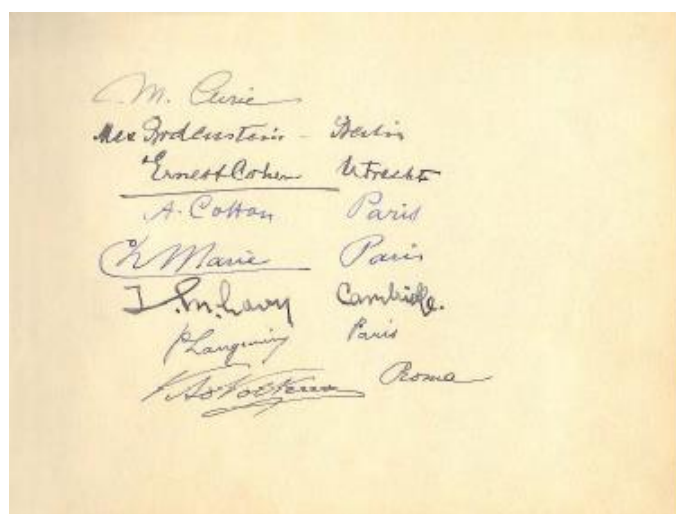 M. Curie
Max Bodenstein - Berlin
Ernest Cohen Utrecht
A. Cotton Paris
Ch Marie Paris
T. M. Lowry Cambridge.
P Langevin Paris
Vito Volterra Roma